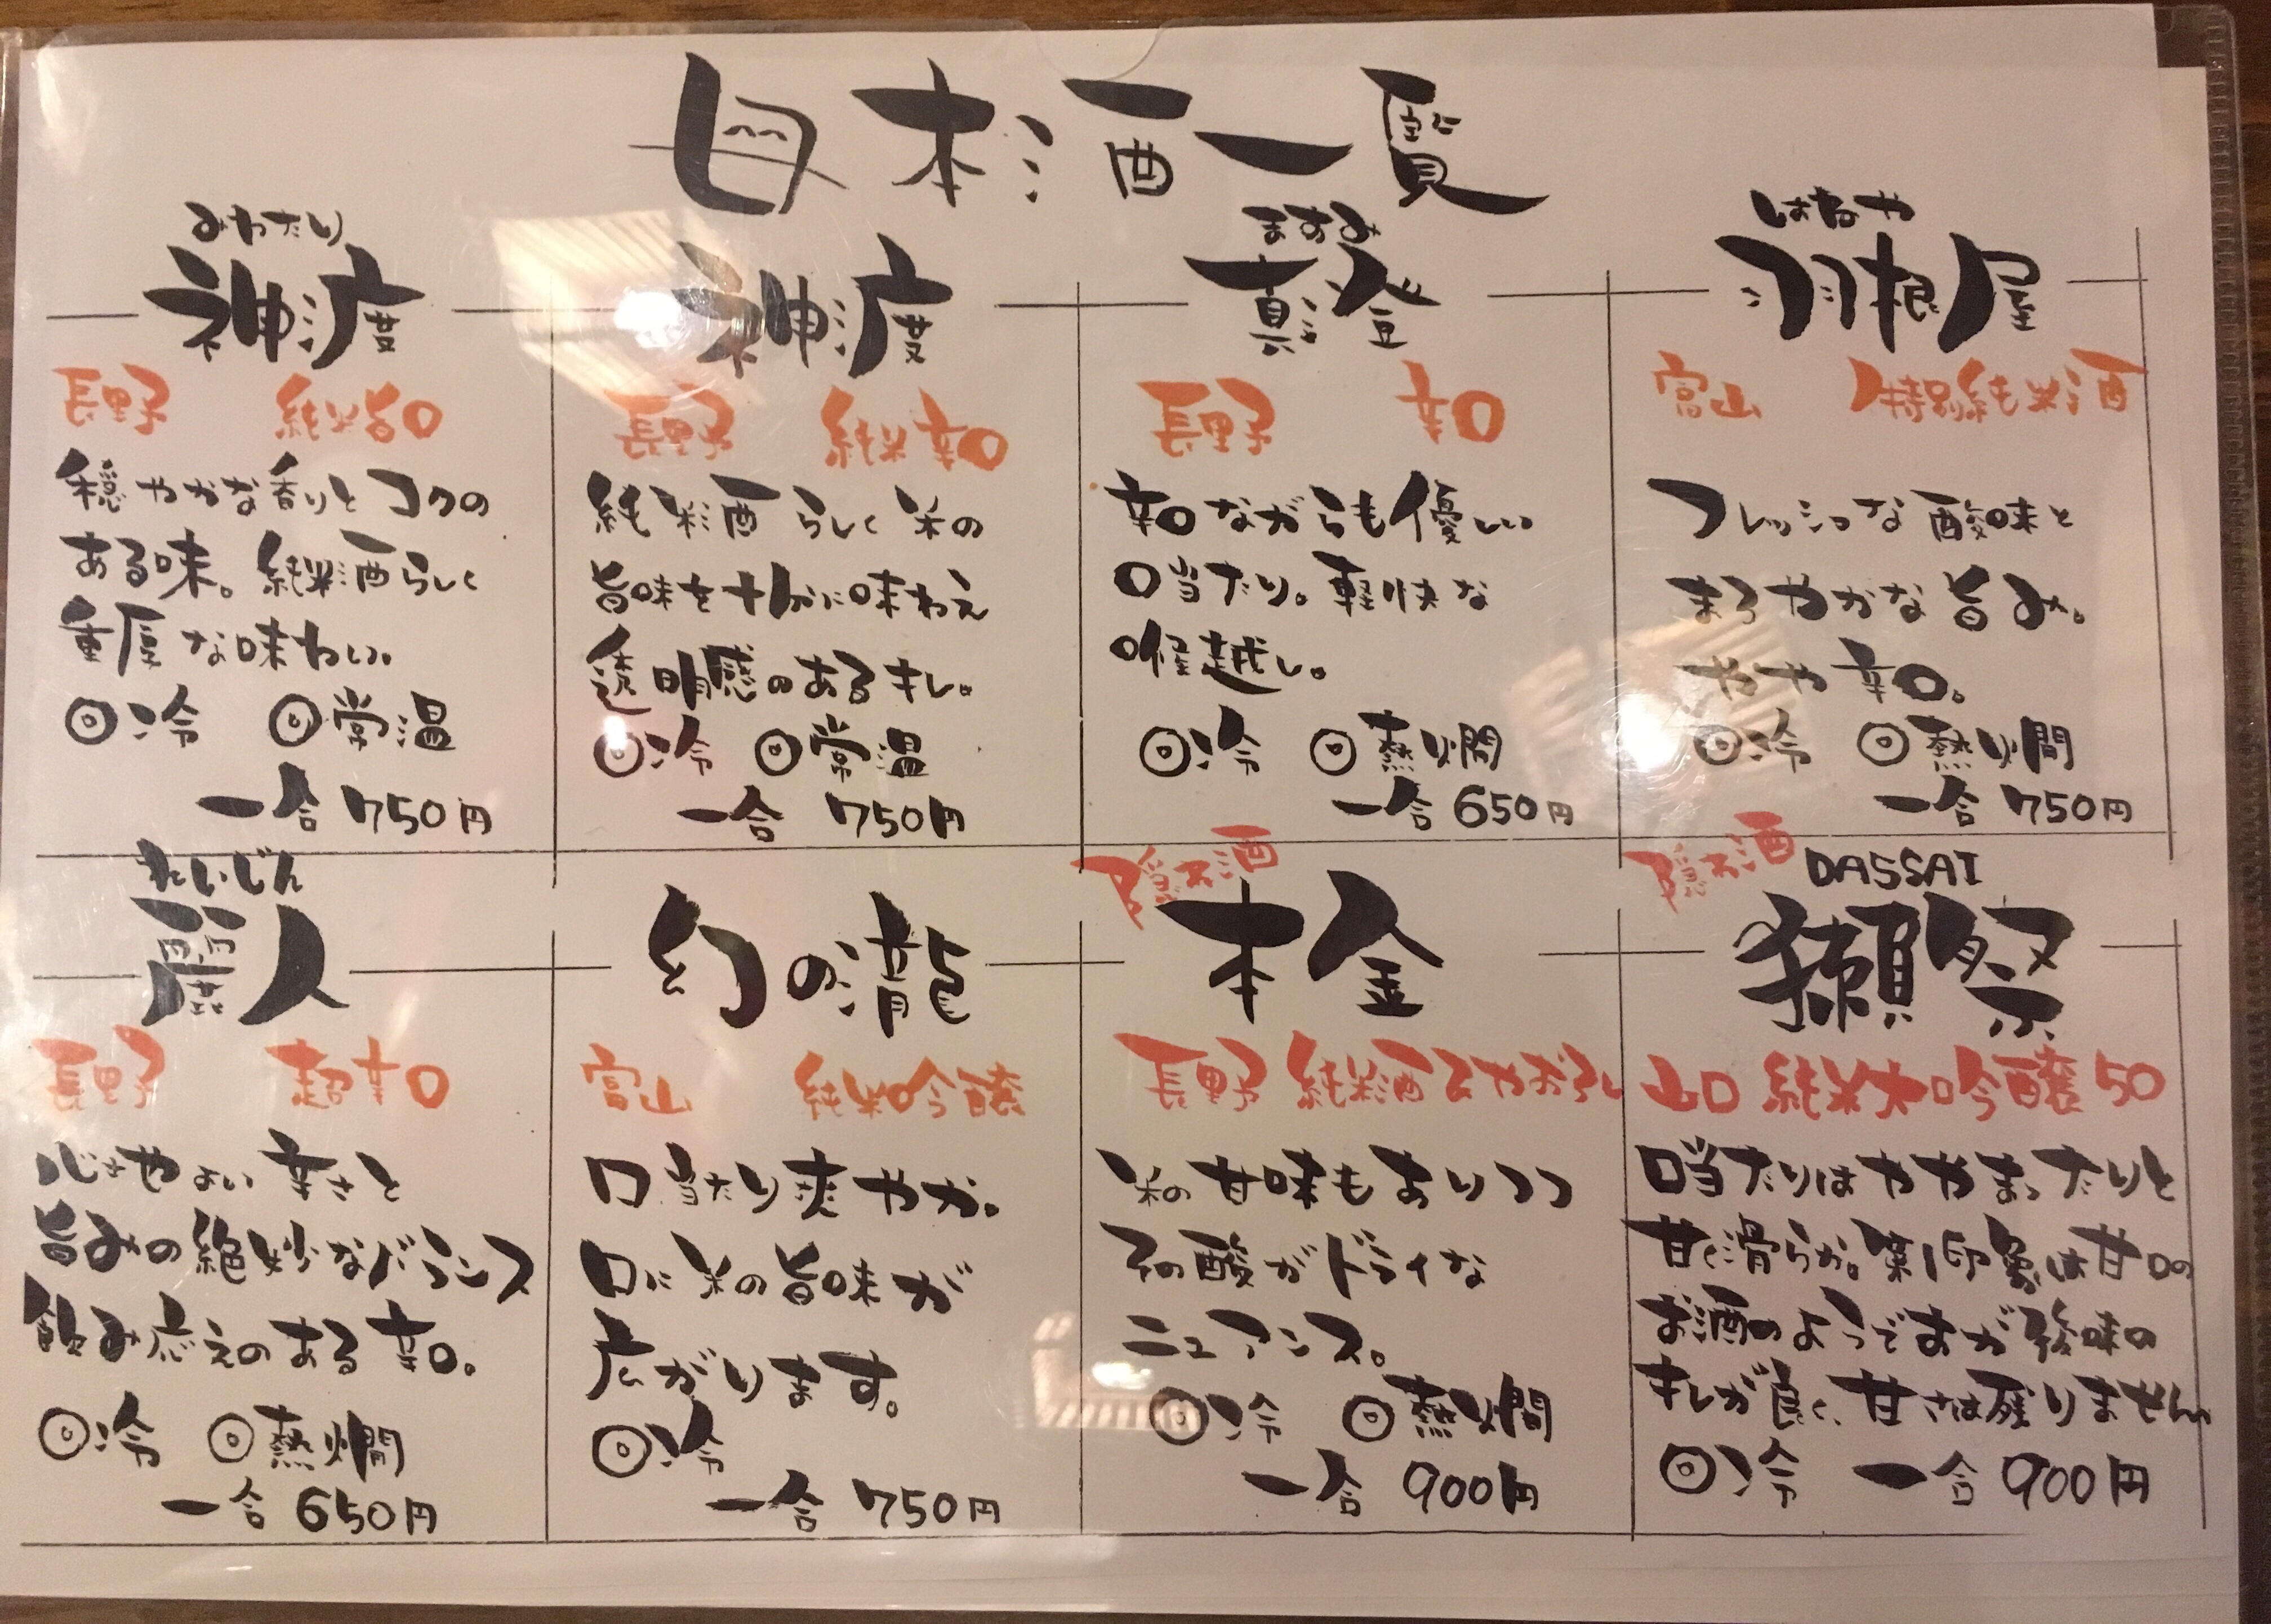 日本酒一覧
みやたり
神渡
長野 純米旨口
穏やかな香りとコクの
ある味。純米酒らしく
重厚な味わい。
◎冷 ◎常温
一合 750円
神渡
長野 純米辛口
純米酒らしく米の
旨味を十分に味わえ
透明感のあるキレ。
◎冷 ◎常温
一合 750円
ますみ
真澄
長野 辛口
辛口ながらも優しい
口当たり。軽快な
喉越し。
◎冷 ◎熱燗
一合 650円
はねや
羽根屋
富山 特別純米酒
フレッシュな酸味と
まろやかな旨み。
やや辛口。
◎冷 ◎熱燗
一合 750円
れいじん
麗人
長野 超辛口
心地よい辛さと
旨みの絶妙なバランス
飲み応えのある辛口。
◎冷 ◎熱燗
一合 650円
幻の瀧
富山 純米吟醸
口当たり爽やか。
口に米の旨味が
広がります。
◎冷
一合 750円
隠れ酒
本金
長野 純米酒ひやおろし
米の甘味もありつつ
その酸がドライな
ニュアンス。
◎冷 ◎熱燗
一合 900円
隠れ酒
DASSAI
獺祭
山口 純米大吟醸50
口当たりはややまったりと
甘く滑らか。第一印象は甘口の
お酒のようですが後味の
キレが良く、甘さは残りません
◎冷 一合 900円